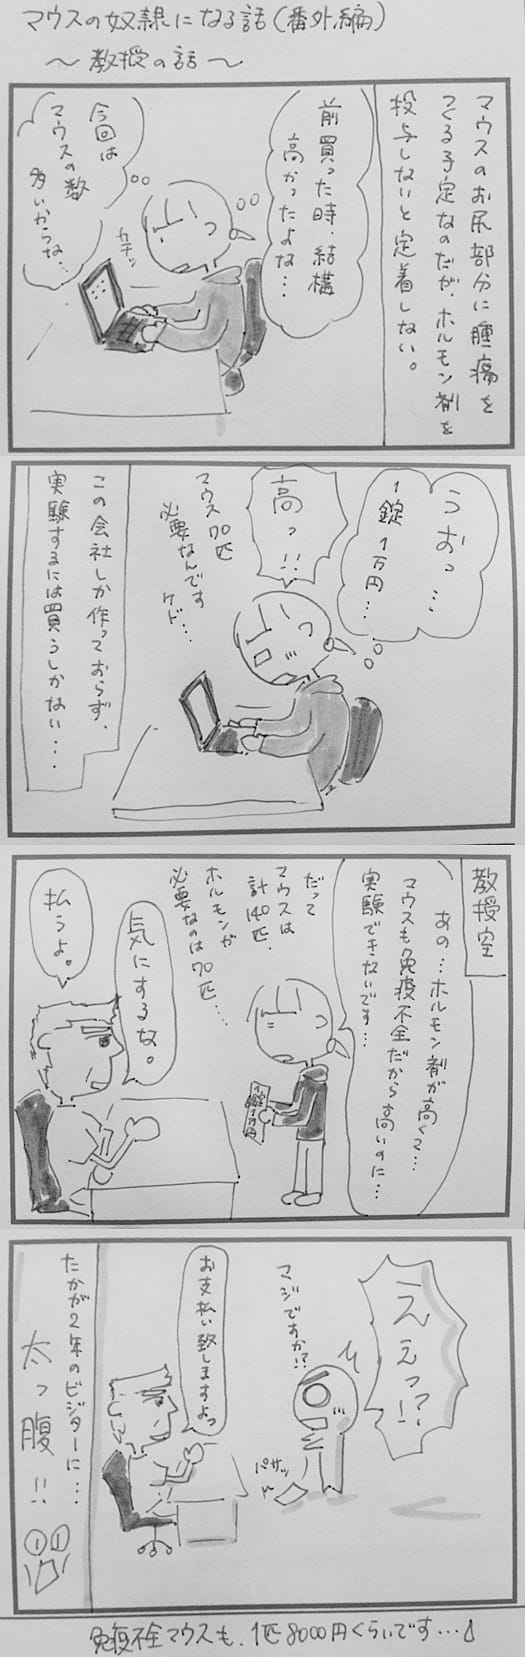 マウスの奴隷になる話(番外編)
〜教授の話〜
マウスのお尻部分に腫瘍を
つくる予定なのだが、ホルモン剤を
投与しないと定着しない。
前買った時、結構
高かったよな…
今回は
マウスの数
多いからな…
カチッ
うおっ…
1錠1万円…
高っ!!
マウス70匹
必要なんです
ケド…
この会社しか作っておらず、
実験するには買うしかない…
教授室
あの…ホルモン剤が高くて…
マウスも免疫不全だから高いのに…
実験できないです…
だって
マウスは
計140匹.
ホルモンが
必要なのは70匹…
1錠1万円
気にするな。
払うよ。
ええっ!?
マジですか!?
パサッ
お支払い致しますよっ
たかが2年のビジターに…
太っ腹!!
免疫不全マウスも、1匹8000円くらいです…